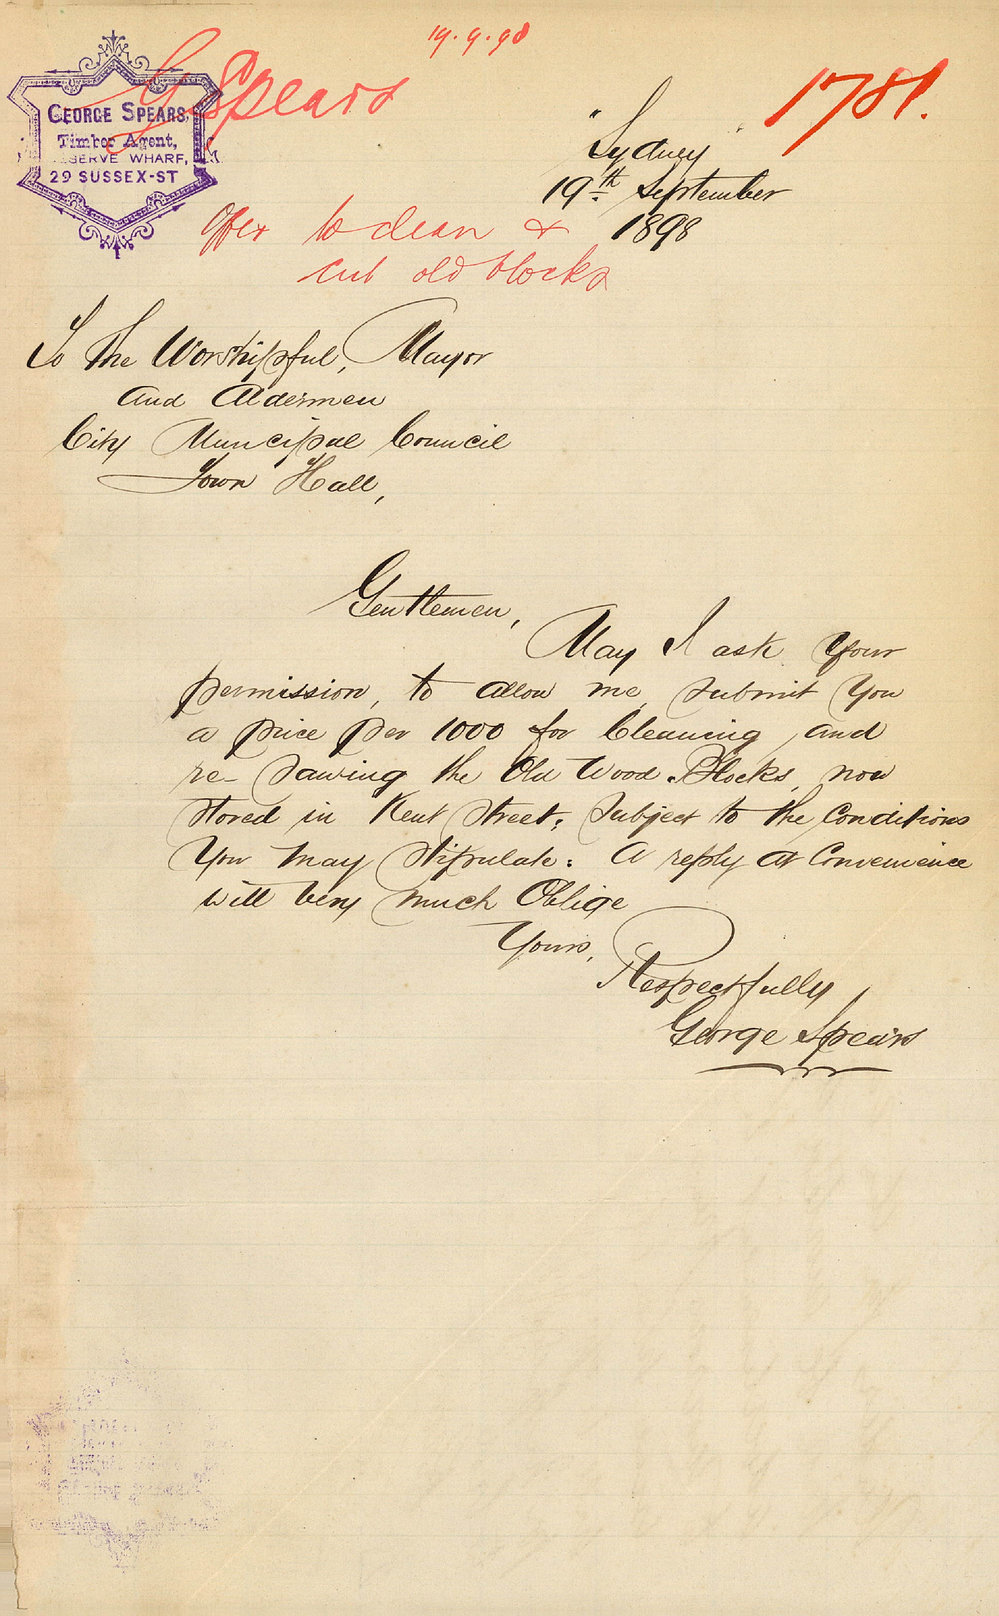 19.9.98
G. Spears
1781.
GEORGE SPEARS,
Timber Agent,
SERVE WHARF,
29 SUSSEX-ST
"Sydney"
19th September
1898
Offer to clean &
cut old blocks
To the Worshipful, Mayor
and Aldermen
City Muncipal Council
Town Hall,
Gentlemen,
May I ask your
permission, to allow me, submit you
a price per 1000 for Cleaning, and
re-sawing the Old Wood Blocks, now
stored in Kent Street; subject to the Conditions
you may stipulate: A reply at Convenience
will very much Oblige
Yours,
Respectfully,
George Spears